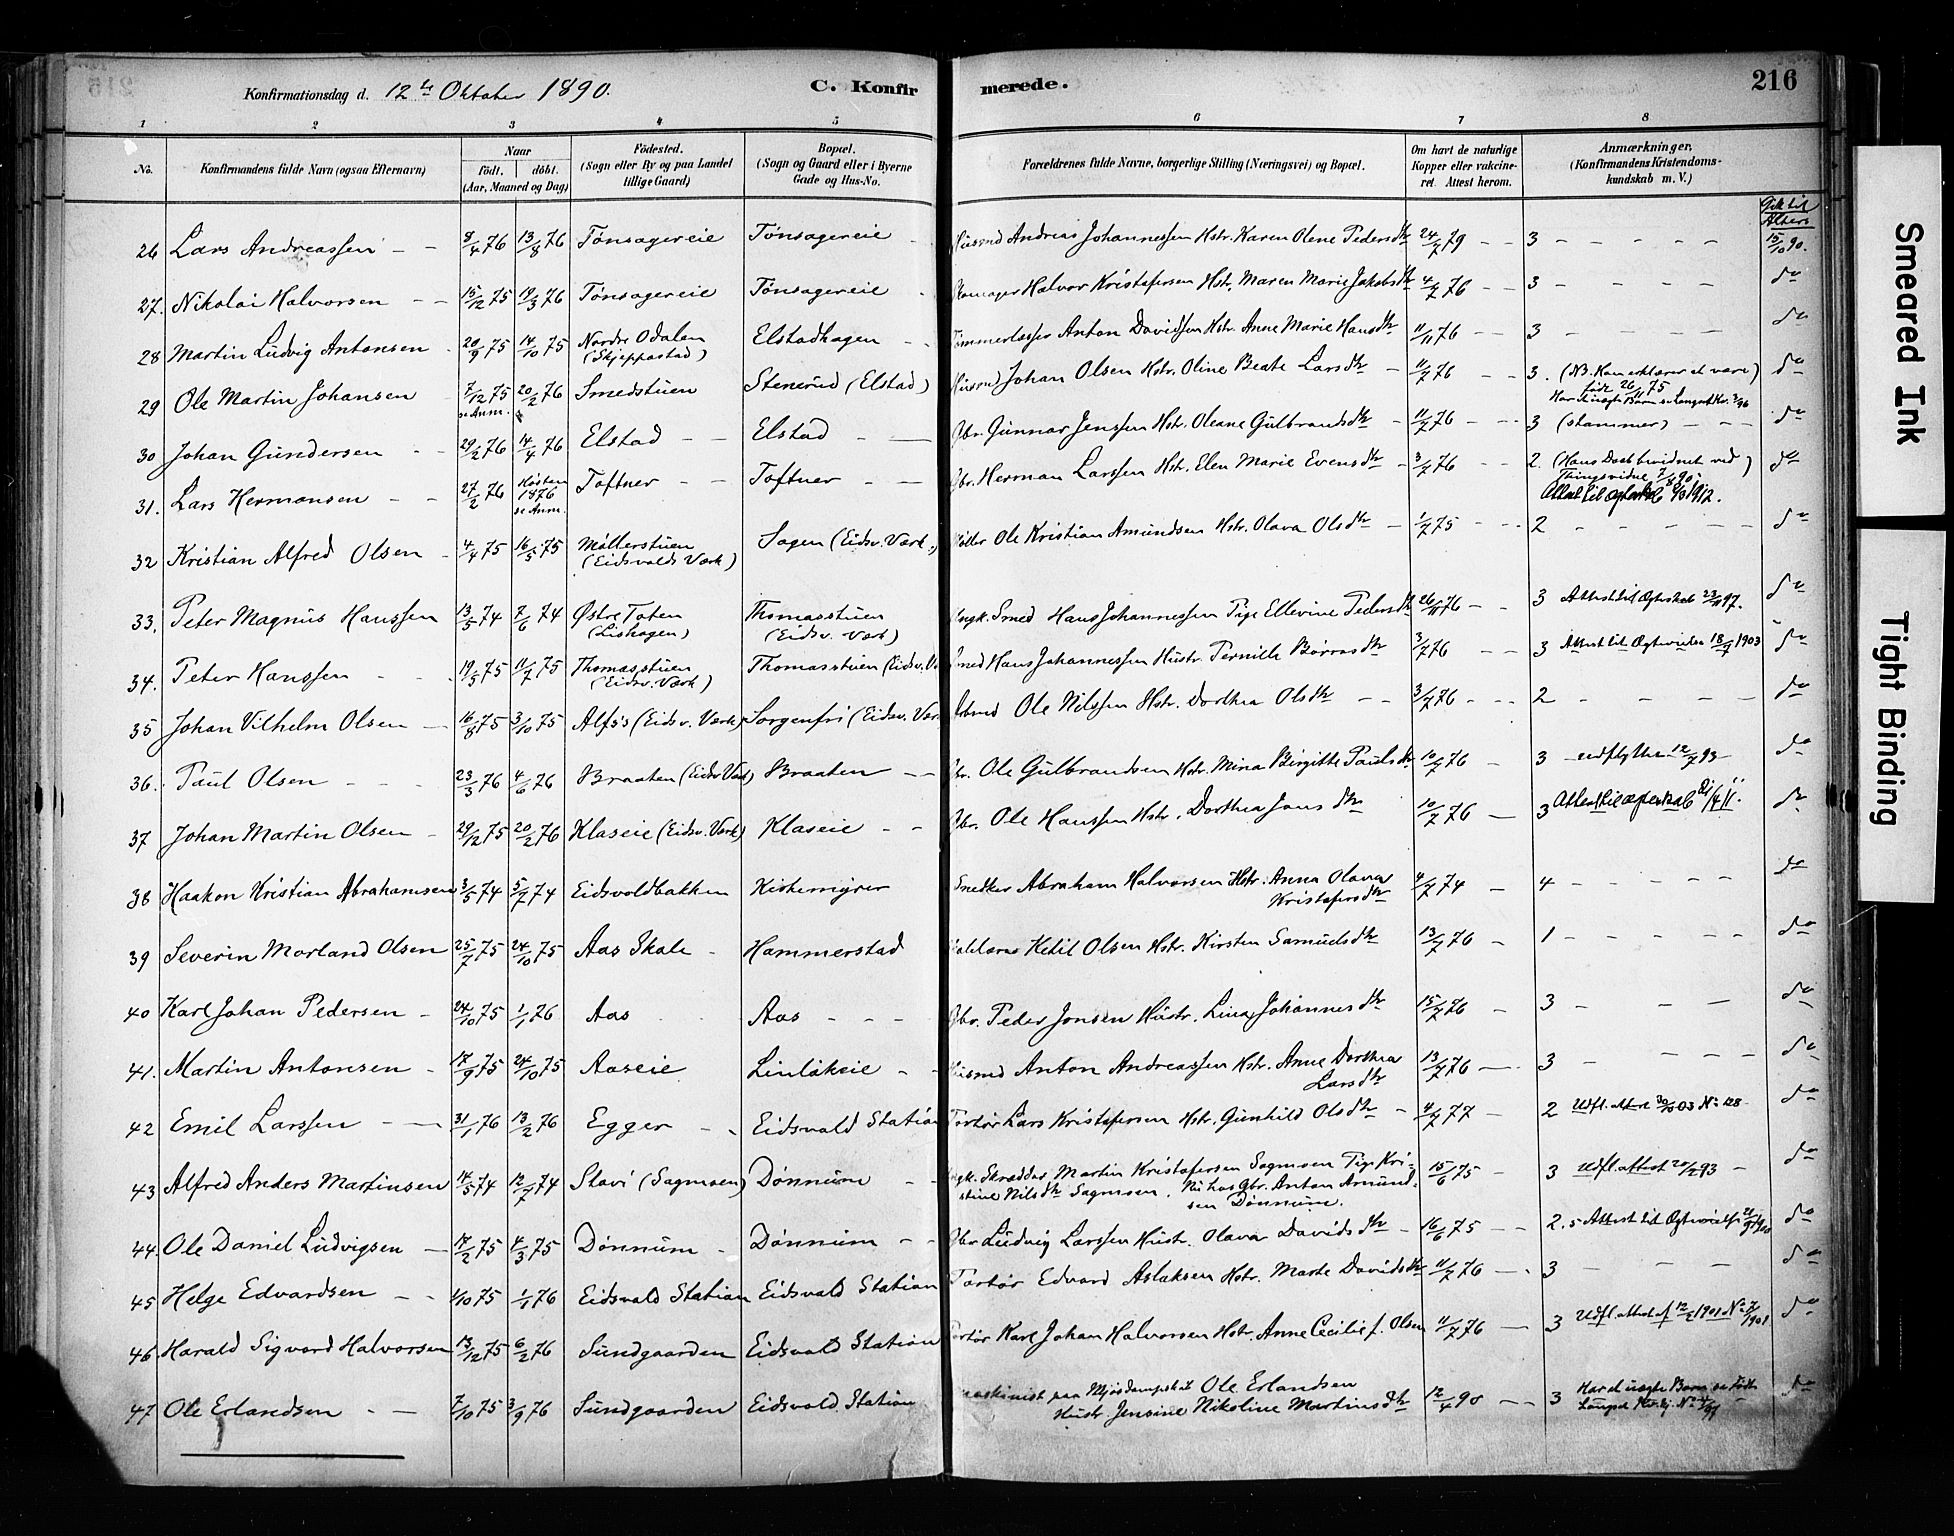 Konfirmationsdag d. 12te Oktober 1890.
C. Konfir
merede.
216
1 2 3 4 5 6 7 8
No.
Konfirmandens fulde Navn (ogsaa Efternavn)
Naar
födt. döbt.
(Aar, Maaned og Dag)
Födested.
(Sogn eller By og paa Landet
tillige Gaard)
Bopæl.
(Sogn og Gaard eller i Byerne
Gade og Hus-No.
Forældrenes fulde Navne, borgerlige Stilling (Næringsvei) og Bopæl.
Om havt de naturlige
Kopper eller vakcine-
ret. Attest herom.
Anmærkninger.
(Konfirmandens Kristendoms-
kundskab m. V.)
Gik til
Alters
26 Lars Andreassen 8/4 76 13/8 76 Tønsagereie Tønsagereie Husmd Andreas Johannessen Hstr. Karen Olene Pedersdtr 24/7 79 3 15/10 90.
27. Nikolai Halvorsen 15/12 75 19/3 76 Tønsagereie Tønsagereie Halvor Kristofersen Hstr. Maren Marie Jakobsdtr 4/7 76 3 do
28 Martin Ludvig Antonsen 20/9 75 14/10 75 Nordre Odalen Elstadhagen Anton Davidsen Hstr. Anne Marie Hansdtr 11/11 76 3 do
(Skjeppastad)
29 Ole Martin Johansen 7/12 75 20/2 76 Smedstuen Stenerud (Elstad) Husmd Johan Olsen Hstr. Oline Beate Larsdtr 11/7 76 3. (NB. Han erklærer at være) do
se Anm. født 26/11 75
30 Johan Gundersen 29/2 76 14/4 76 Elstad Elstad Gbr. Gunnar Jenssen Hstr. Oleane Gulbrandsdtr 11/7 76 3 (stammer) do
31. Lars Hermansen 27/2 76 Høsten 1876 se Anm. Toftner Toftner Gbr. Herman Larssen Hstr. Elen Marie Evensdtr 3/7 76 2. (Hans Daab bevidnet ved) do
Thingsvidne 7/8 90
32 Kristian Alfred Olsen 4/4 75 16/5 75 Møllerstuen Sagen (Eidsv. Værk.) Møller Ole Kristian Amundsen Hstr. Olava Olsdtr 1/7 75 2 do
(Eidsvolds Værk)
33. Peter Magnus Hanssen 13/5 74 7/6 74 Østre Toten Thomasstuen Ungk. Smed Hans Johannessen Pige Ellevine Pedersdtr 26/11 76 3 Attest til Ægteskab 23/11 97. do
(Lishagen) (Eidsv. Værk)
34. Peter Hanssen 19/5 75 11/7 75 Thomasstuen Thomasstuen (Eidsv. Væ Smed Hans Johannessen Hustr. Pernille Børresdtr 3/7 76 3 Attest til Ægtevielse 18/7 1903 do
(Eidsv. Værk)
35 Johan Vilhelm Olsen 16/8 75 3/10 75 Alfs's (Eidsv. Værk) Sorgenfri (Eidsv. Vær Ole Nilssen Hstr. Dorthea Olsdtr 3/7 76 2 do
36. Paul Olsen 23/3 76 4/6 76 Braaten (Eidsv Værk) Braaten Gbr. Ole Gulbrandsen Hstr. Mina Birgitte Paulsdtr 10/7 76 3 udflyttet 12/7 93 do
37 Johan Martin Olsen 29/12 75 20/2 76 Klaseie (Eidsv. Værk) Klaseie Gbr. Ole Hanssen Hstr. Dorthea Jansdtr 10/7 76 3 Attest til ægteskab 21/4 11. do
38 Haakon Kristian Abrahamsen 3/5 74 5/7 74 Eidsvoldbakken Kirkemyrer Snedker Abraham Halvorsen Hstr. Anna Olava 4/7 74 4 do
Kristofersdtr
39 Severin Morland Olsen 25/7 75 24/10 75 Aas Skole Hammerstad Ketil Olsen Hstr. Kirsten Samuelsdtr 13/7 76 1 do
40 Karl Johan Pedersen 24/10 75 1/1 76 Aas Aas Gbr. Peder Jonsen Hustr. Lina Johannesdtr 15/7 76 3 do
41. Martin Antonsen 17/9 75 24/10 75 Aaseie Linløkeie Husmd Anton Andreassen Hstr. Anne Dorthea 13/7 76 3 do
Larsdtr
42 Emil Larssen 31/1 76 13/2 76 Egger Eidsvold Station Portør Lars Kristofersen Hstr. Gunhild Olsdtr 4/7 77 2 Udfl. attest 30/10 03 No 128 do
43 Alfred Anders Martinsen 14/5 74 12/7 74 Stavi (Sagmoen) Dønnum Ungk. Skrædder Martin Kristofersen Sagmoen Pige Kri- 15/6 75 3 Udfl. attest 20/2 93 do
stine Nilsdtr Sagmoen. Nu hos Gbr. Anton Amund-
sen Dønnum.
44. Ole Daniel Ludvigsen 17/2 75 4/3 75 Dønnum Dønnum Gbr Ludvig Larssen Hustr. Olava Davidsdtr 16/6 75 2.5 Attest til Ægtevielse do
45 Helge Edvardsen 1/10 75 1/1 76 Eidsvold Station Eidsvold Station Portør Edvard Aslaksen Hstr. Marte Davidsdtr 11/7 76 3 do
46 Harald Sigvard Halvorsen 13/12 75 6/2 76 Sundgaarden Eidsvold Station Portør Karl Johan Halvorsen Hstr. Anne Cecilie f. Olsen 11/7 76 3 Udfl. attest do
47 Ole Erlandsen 7/10 75 3/9 76 Sundgaarden Eidsvold Station Maskinist paa Mjøsdampskib Ole Erlandsen 12/4 90 3 Har et uægte Barn se Føds do
Hustr. Jensine Nikoline Martinsdtr
Smeared Ink
Tight Binding